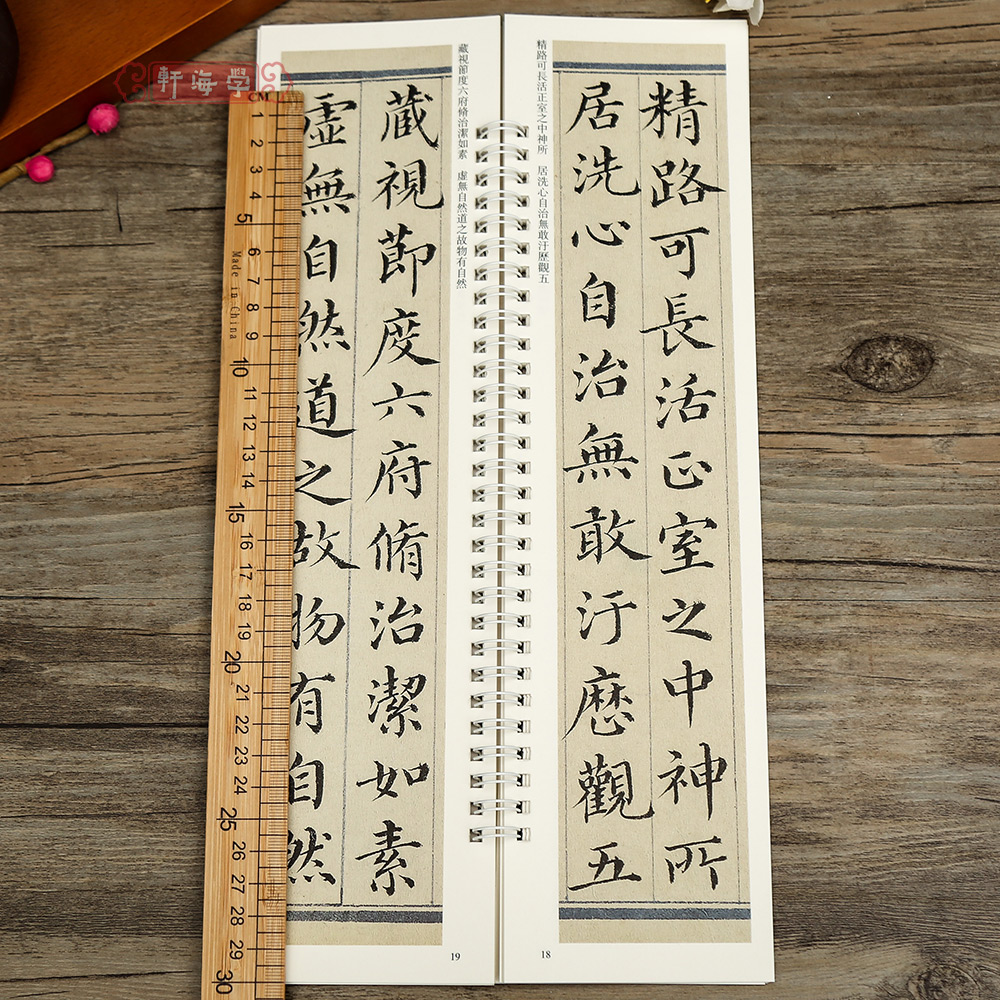 軒海学
精路可長活正室之中神所
居洗心自治無敢汙歷觀五
精路可長活正室之中神所 居洗心自治無敢汙歷觀五
18
藏視節度六府脩治潔如素
虛無自然道之故物有自然
藏視節度六府脩治潔如素 虛無自然道之故物有自然
19
1
2
3
4
5
6
7
8
9
10
11
12
13
14
15
16
17
18
19
20
21
22
23
24
25
26
27
28
29
30
Made in China